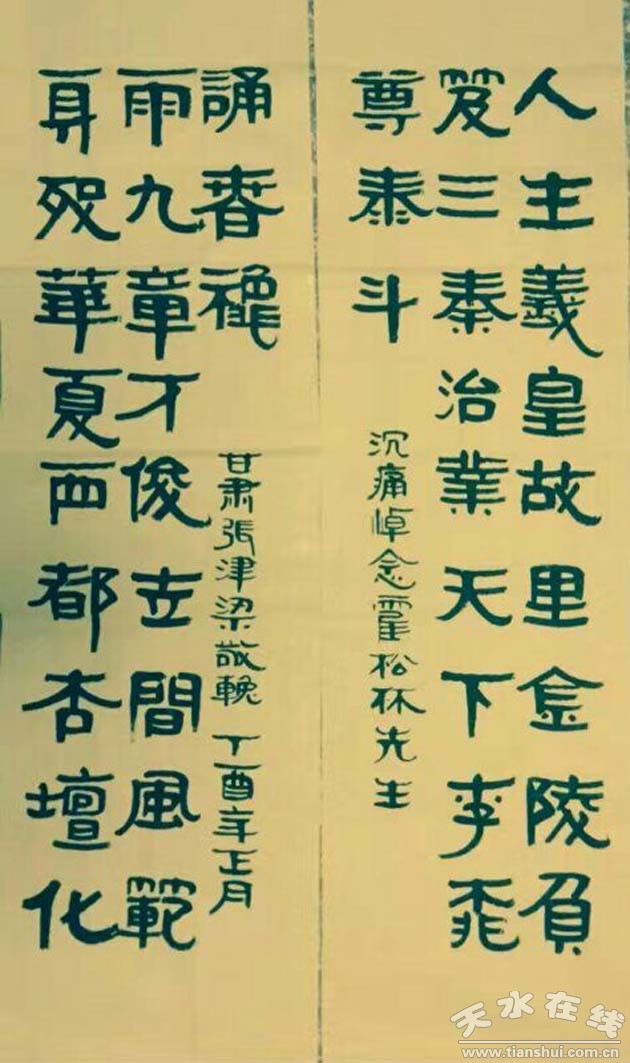 人生羲皇故里金陵負
笈三秦治業天下李桃
尊泰斗
沉痛悼念霍松林先生
身歿華夏西都杏壇化
雨九章才俊世間風範
誦春穠
甘肅張津梁敬輓 丁酉年正月
天水在线
www.tianshui.com.cn